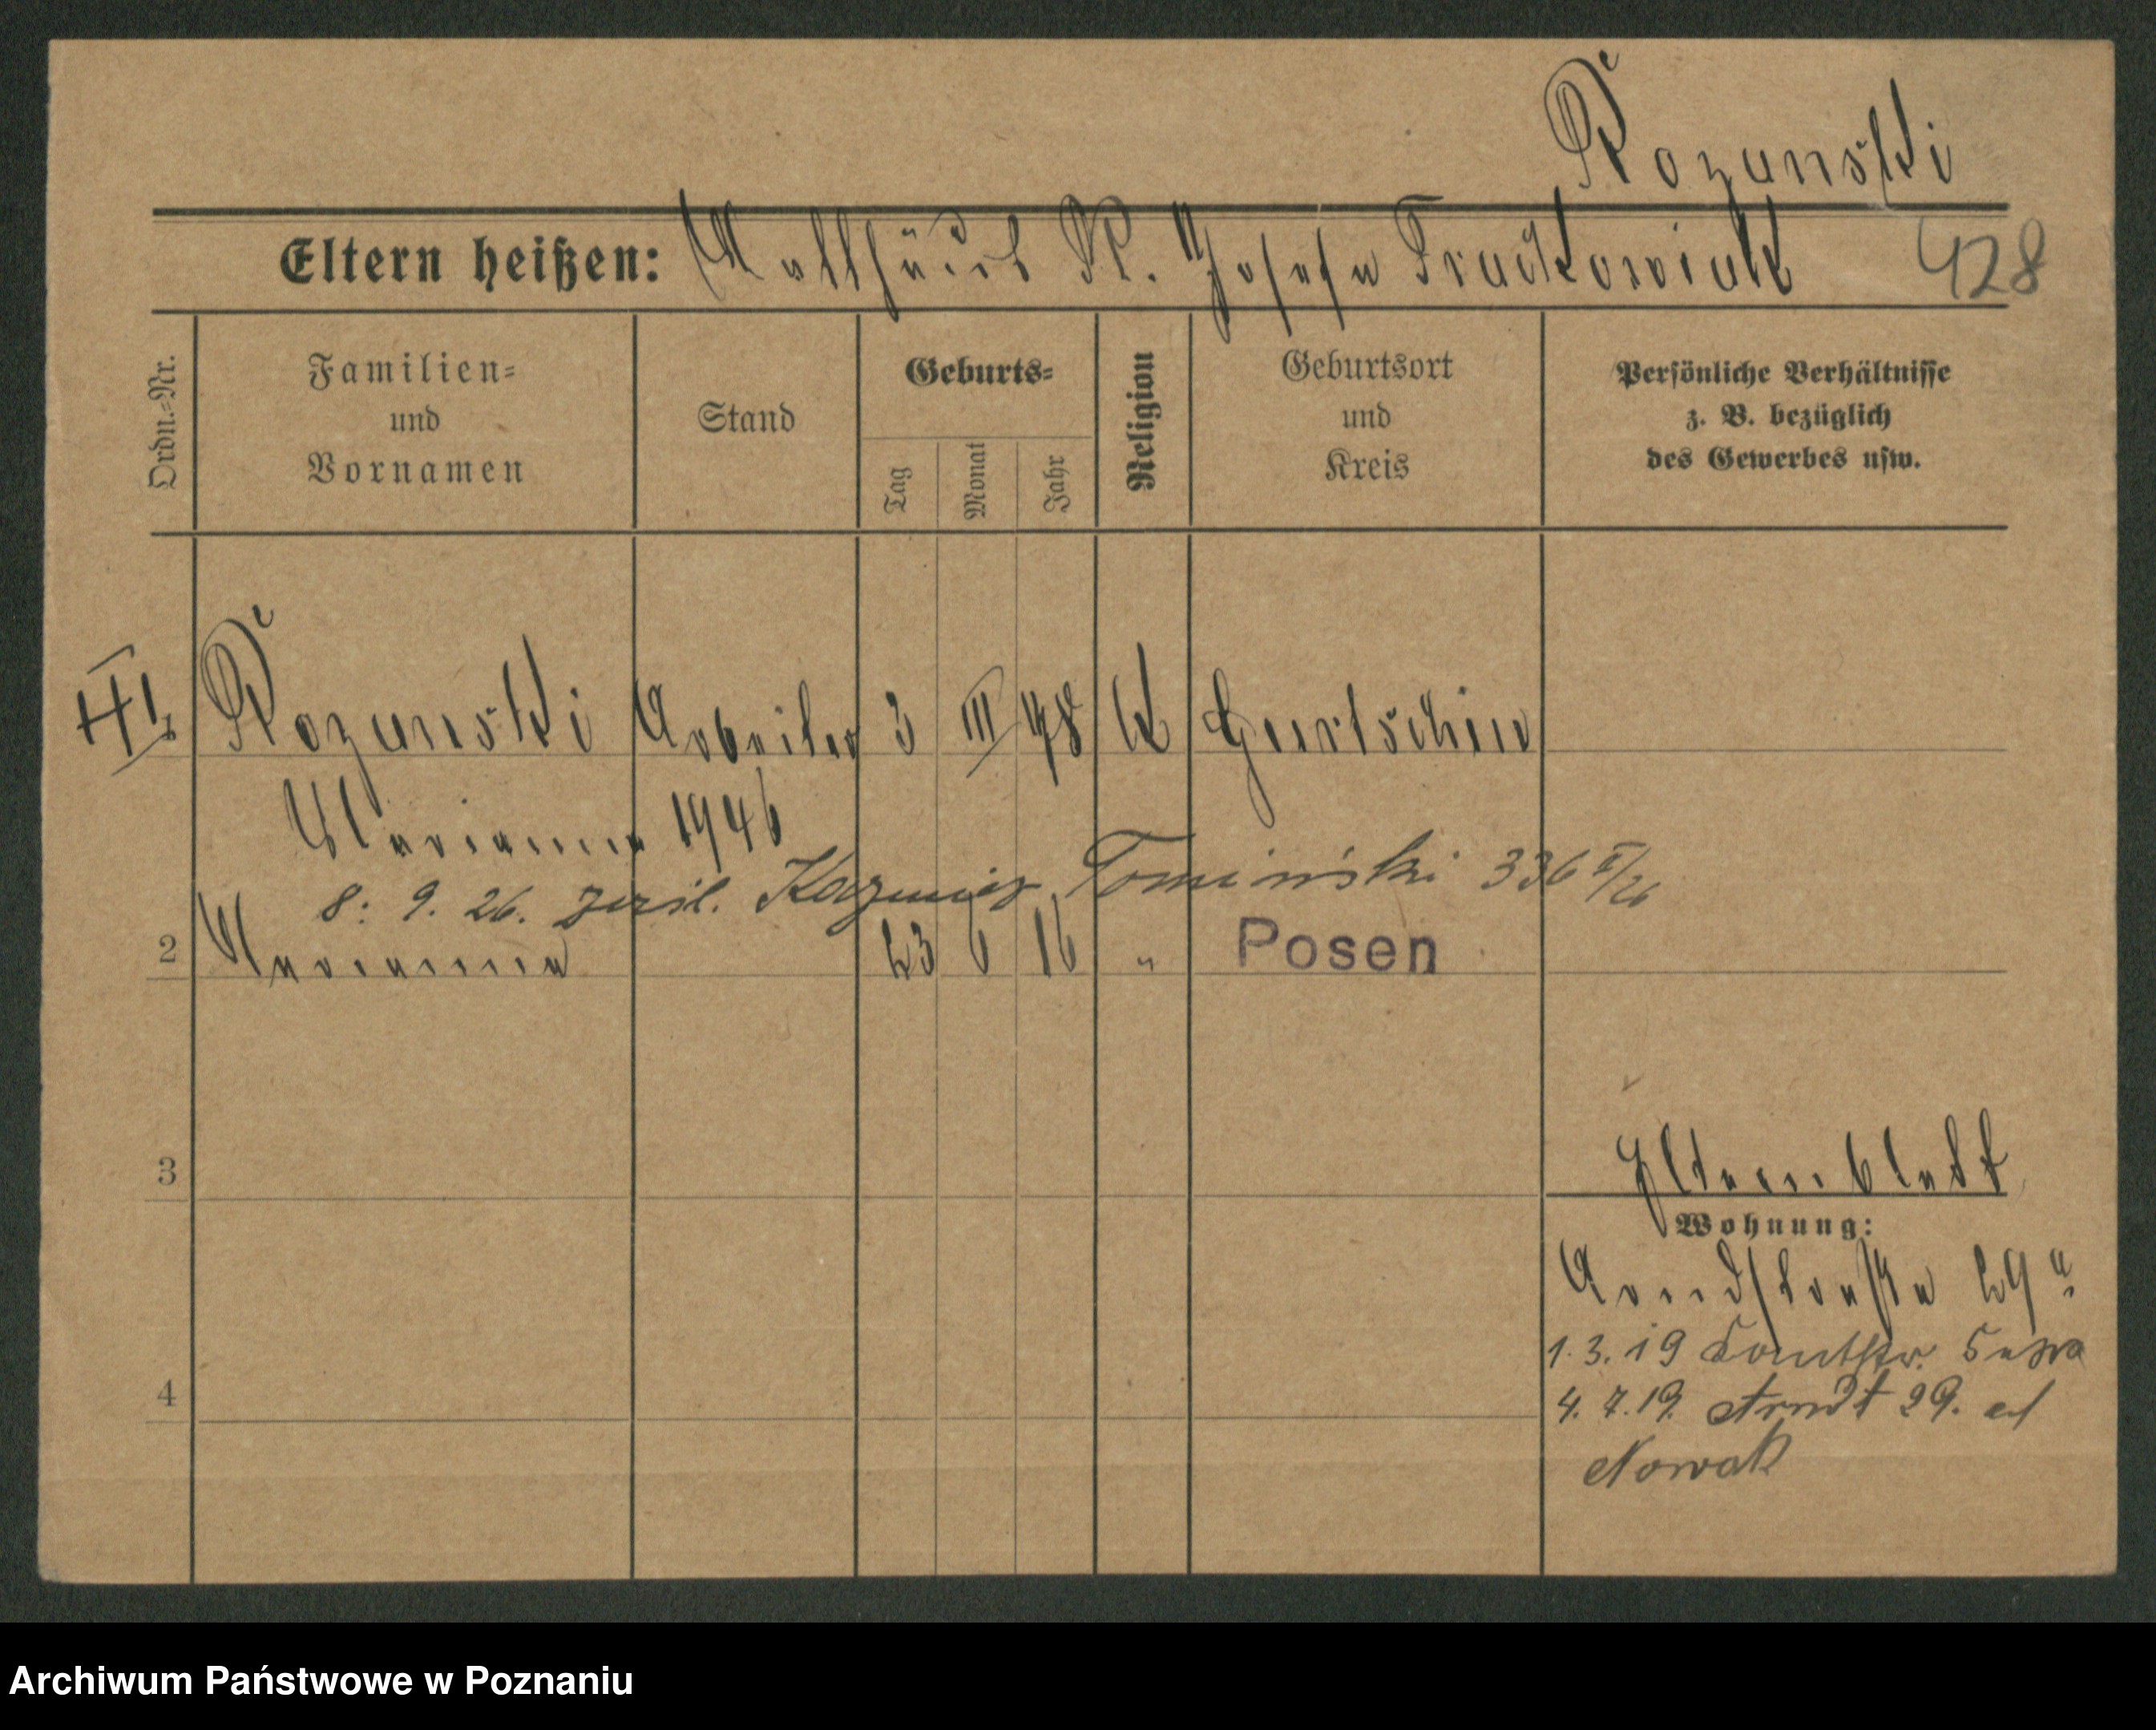 Rozanski
Eltern heißen: Matthäus R. Josefa Frackowiak 428
Ordn.=Nr.
Familien=
und
Vornamen
Stand
Geburts=
Tag
Monat
Jahr
Religion
Geburtsort
und
Kreis
Persönliche Verhältnisse
z. B. bezüglich
des Gewerbes usw.
Rozanski Arbeiter 3 III 98 K Gurtschin
Marianna 1946
8. 9. 26. Kazmierz Tomiński 336 I/26
2 Marianna 23 6 16 " Posen
3
Elternblatt
Wohnung:
Arndtstraße 29a
1. 3. 19
4
4. 7. 19. Arndt 29.
Nowak
Archiwum Państwowe w Poznaniu